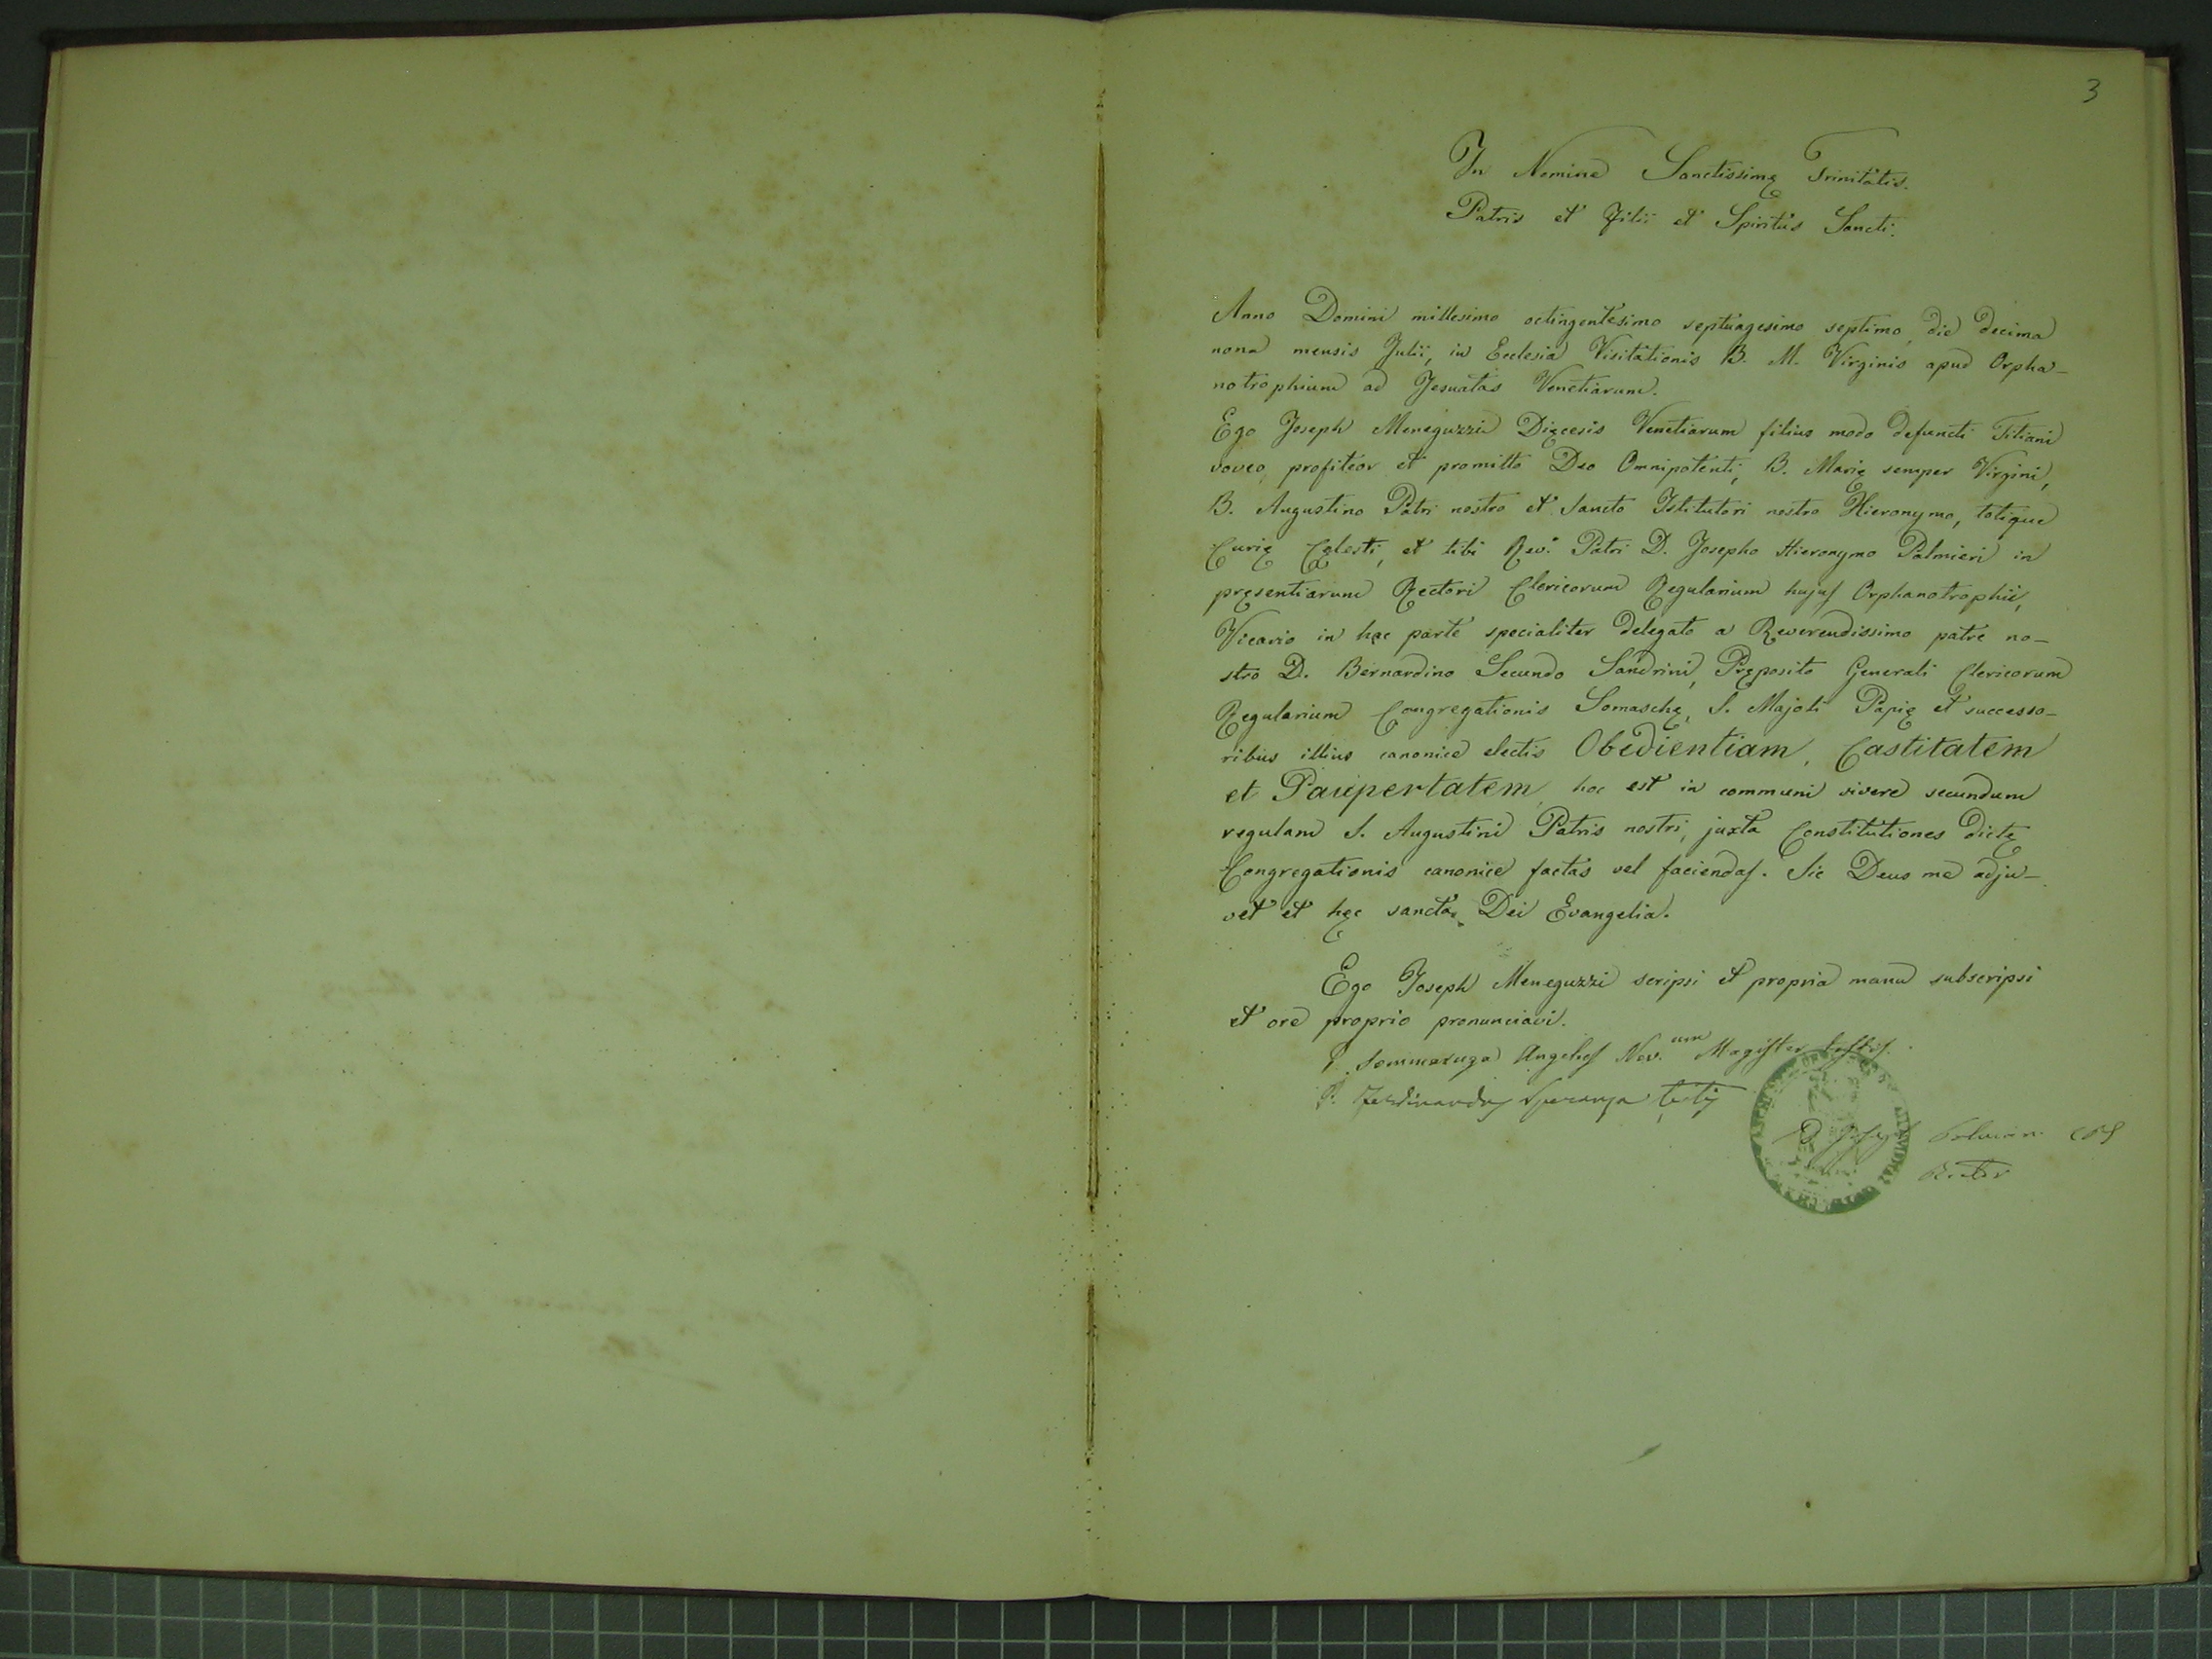 3
In Nomine Sanctissimę Trinitatis.
Patris et Filii et Spiritus Sancti.
Anno Domini millesimo octingentesimo septuagesimo septimo, die decima
nona mensis Julii, in Ecclesia Visitationis B. M. Virginis apud Orpha-
notrophium ad Jesuatas Venetiarum.
Ego Joseph Meneguzzi Dięcesis Venetiarum filius modo defuncti Titiani
voveo, profiteor et promitto Deo Omnipotenti, B. Marię semper Virgini,
B. Augustino Patri nostro et Sancto Istitutori nostro Hieronymo, totique
Curię Cęlesti, et tibi Rev.º Patri D. Josepho Hieronymo Palmieri in
pręsentiarum Rectori Clericorum Regularium hujus Orphanotrophii,
Vicario in hac parte specialiter delegato a Reverendissimo patre no-
stro D. Bernardino Secundo Sandrini, Pręposito Generali Clericorum
Regularium Congregationis Somaschę, S. Majoli Papię et successo-
ribus illius canonice electis Obedientiam, Castitatem
et Paupertatem, hoc est in communi vivere secundum
regulam S. Augustini Patris nostri, juxta Constitutiones dictę
Congregationis canonice factas vel faciendas. Sic Deus me adju-
vet et hęc sancta Dei Evangelia.
Ego Joseph Meneguzzi scripsi et propria manu subscripsi
et ore proprio pronunciavi.
P. Sommaruga Angelus Nov.um Magister testis.
P. Ferdinandus Speranza testis
D. Joseph Palmieri CRS
Rector